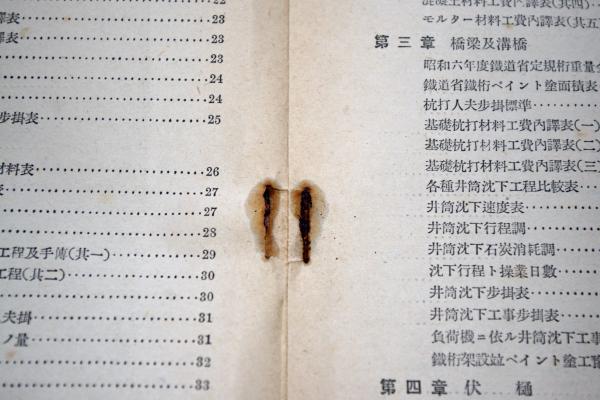 22
譯表 23
譯表 23
23
24
24
步掛表 25
材料表 26
表 27
27
28
工程及手傳(其一) 29
工程(其二) 30
30
夫掛 31
ノ量 31
32
33
混凝土材料工費內譯表(其四)
モルター材料工費內譯表(其五)
第三章 橋梁及溝橋
昭和六年度鐵道省定規桁重量
鐵道省鐵桁ペイント塗面積表
杭打人夫步掛標準
基礎杭打材料工費內譯表(一)
基礎杭打材料工費內譯表(二)
基礎杭打材料工費內譯表(三)
各種井筒沈下工程比較表
井筒沈下速度表
井筒沈下行程調
井筒沈下石炭消耗調
沈下行程ト操業日數
井筒沈下步掛表
井筒沈下工事步掛表
負荷機ニ依ル井筒沈下工事
鐵桁架設竝ペイント塗工
第四章 伏樋